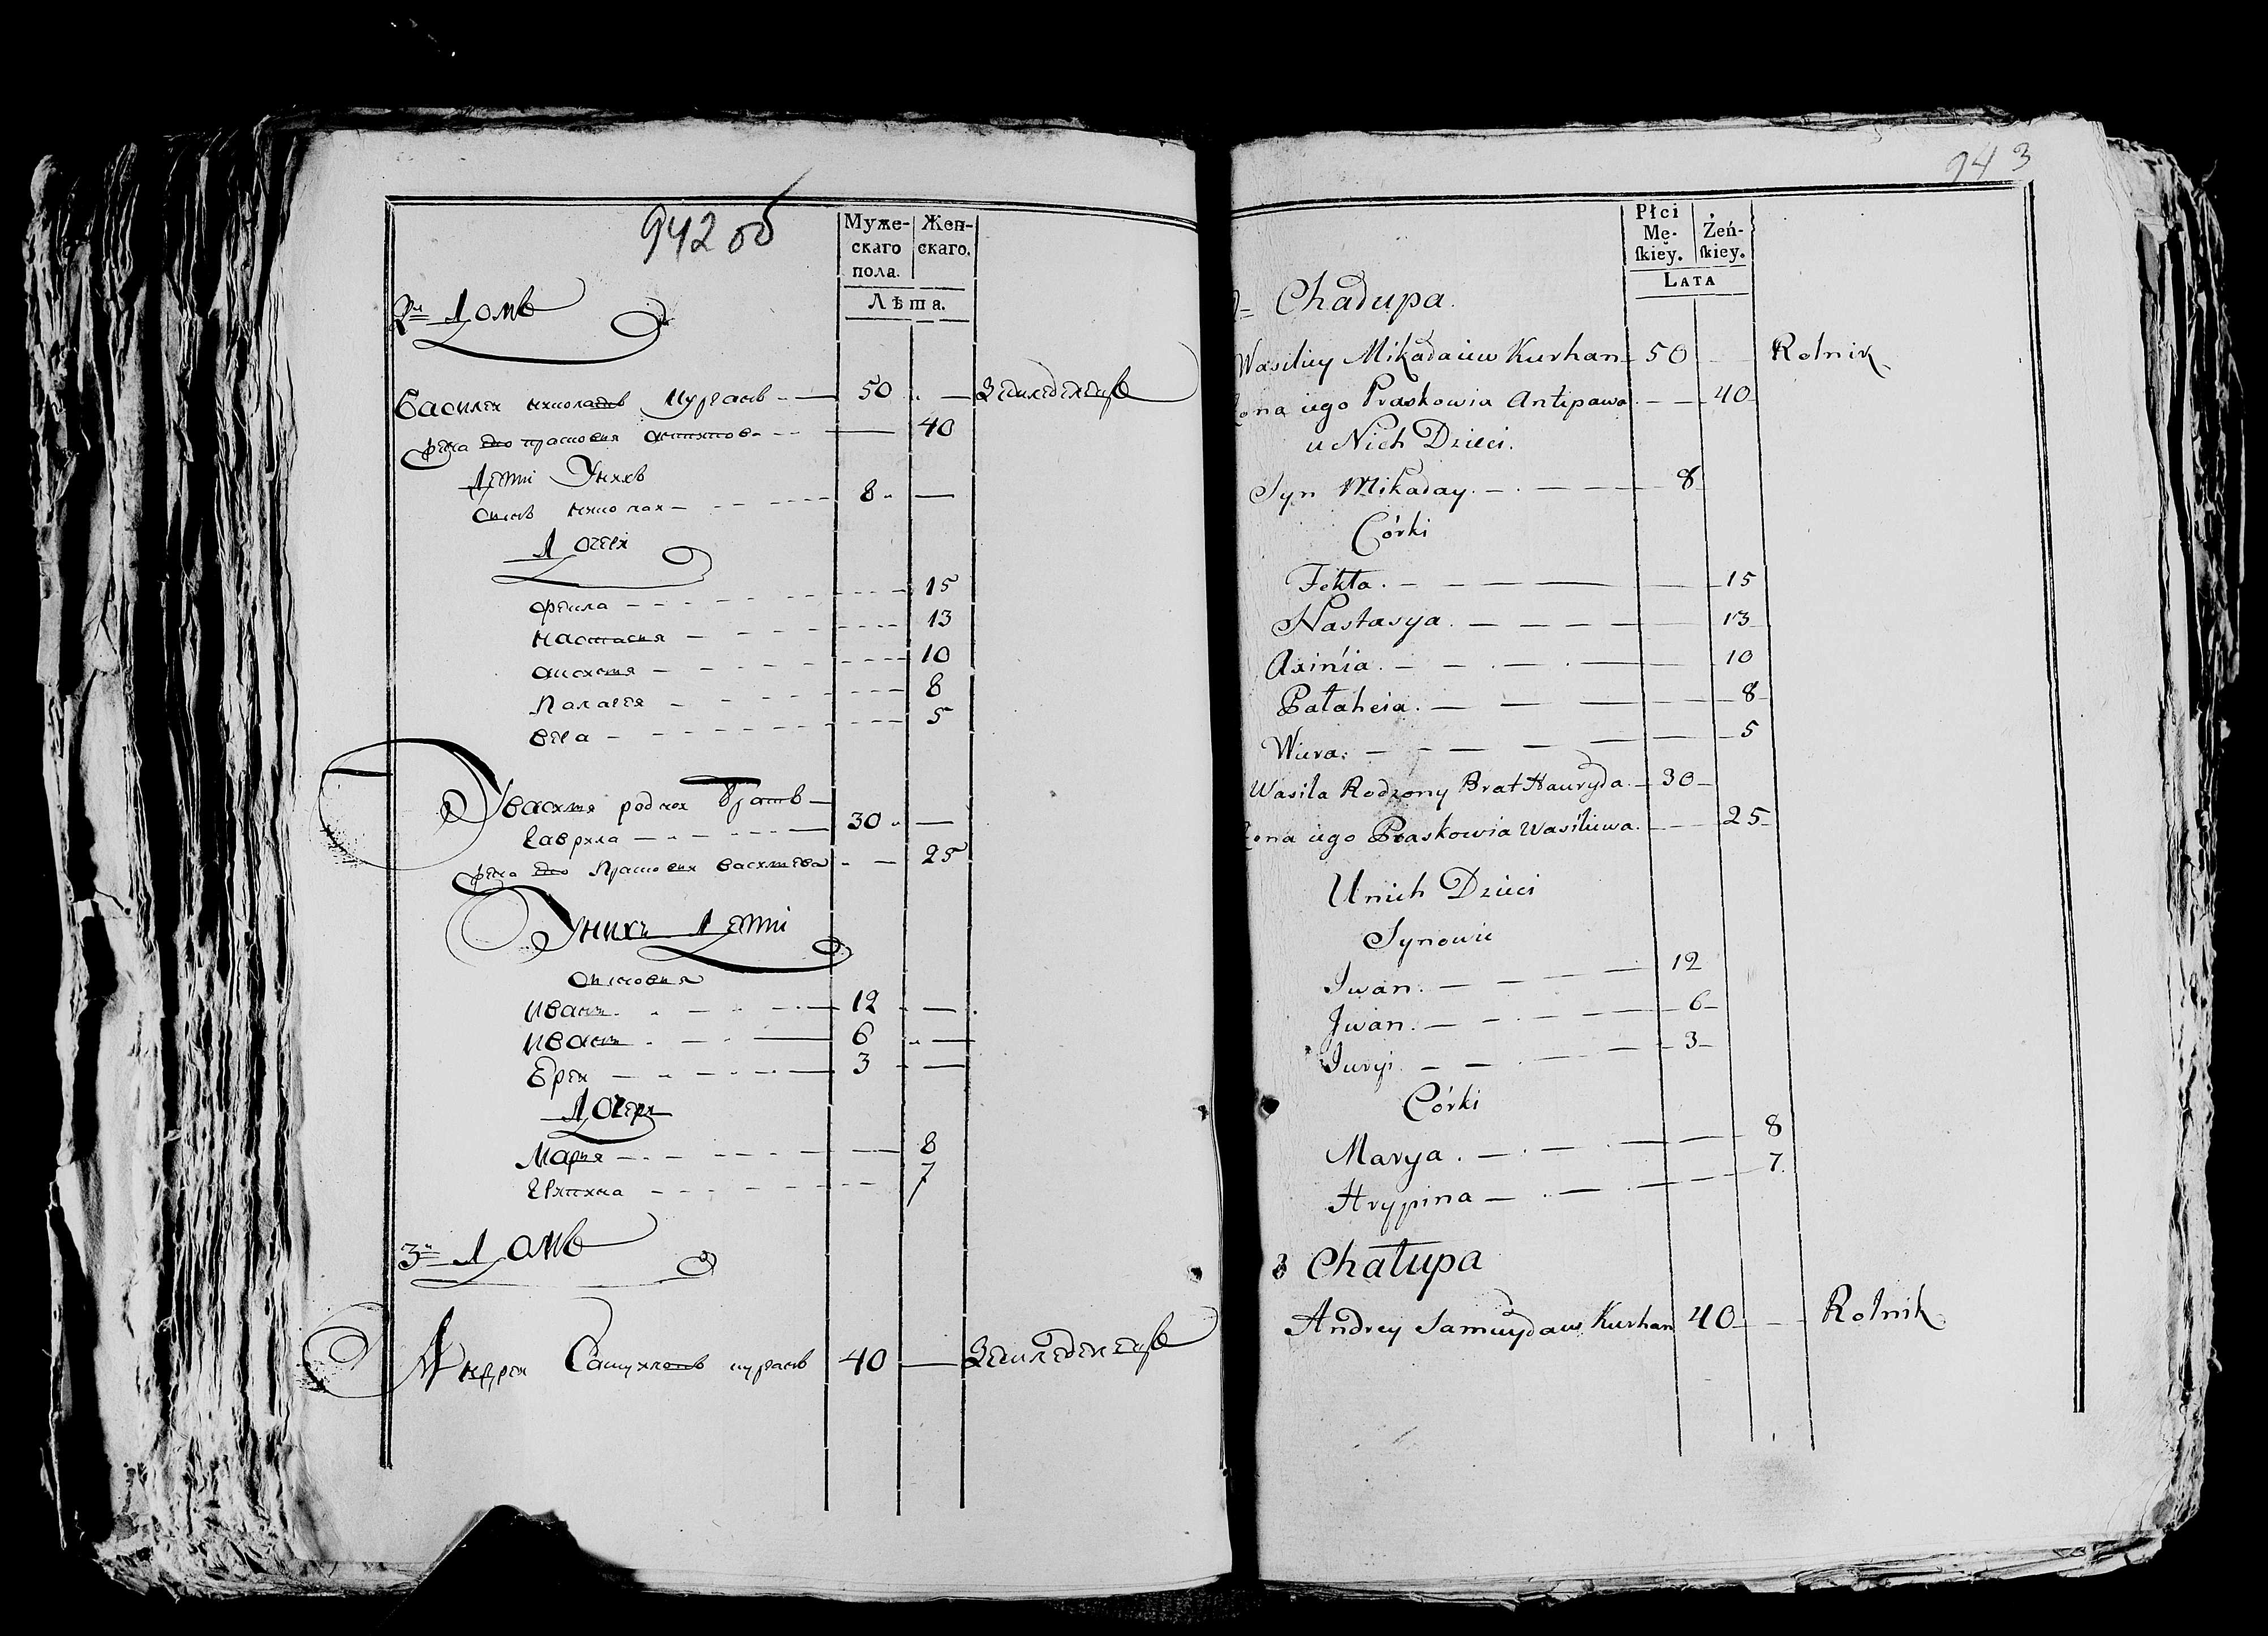 942 об
Муже-
скаго
пола.
Жен-
скаго.
Лѣта.
2й Домъ
Василеи николаевъ курганъ 50 Земледелецъ
жена его прасковия антипов 40
Дети Унихъ
Синъ николаи 8
Дочеи
Фекла 15
настасия 13
аксения 10
Палагея 8
вера 5
Увасиля роднои братъ
Гаврила 30
жена его Прасковия василева 25
Унихъ Дети
Синовия
Иванъ 12
Иванъ 6
Ереи 3
Дочери
Мария 8
Грипина 7
3й Домъ
Андреи Самуиловъ курганъ 40 Земледелецъ
943
Płci
Mę-
ſkiey.
Żeń-
ſkiey.
LATA
2= Chałupa.
Wasiliey Mikałaiew Kurhan 50 Rolnik
Żona iego Praskowia Antipawa 40
u Nich Dzieci.
Syn Mikałay 8
Córki
Fekła 15
Nastasya 13
Axinia 10
Pałaheia 8
Wiera 5
Wasila Rodzony Brat Hauryła 30
Żona iego Praskowia Wasiliewa 25
Unich Dzieci
Synowie
Iwan 12
Jwan 6
Juryi 3
Córki
Marya 8
Hrypina 7
3 Chałupa
Andrey Samuyław Kurhan 40 Rolnik